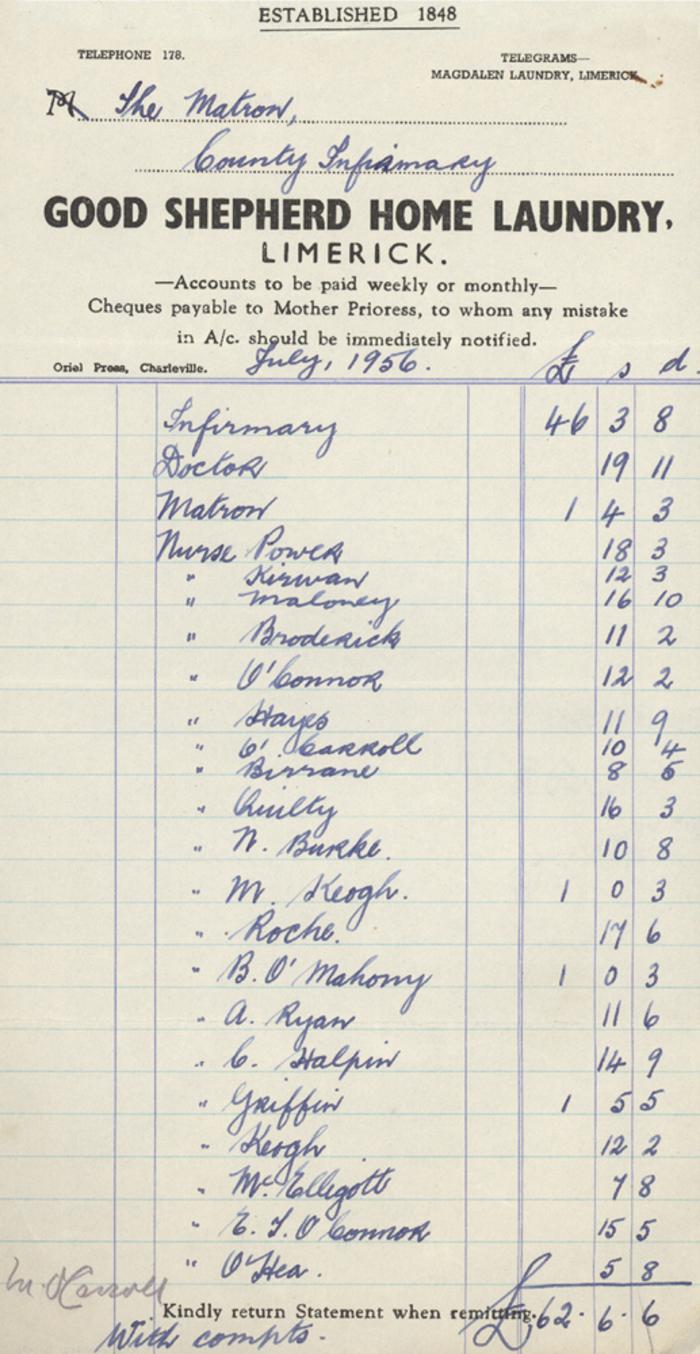 ESTABLISHED 1848
TELEPHONE 178.
TELEGRAMS—
MAGDALEN LAUNDRY, LIMERICK.
M The Matron,
County Infirmary
GOOD SHEPHERD HOME LAUNDRY,
LIMERICK.
—Accounts to be paid weekly or monthly—
Cheques payable to Mother Prioress, to whom any mistake
in A/c. should be immediately notified.
Oriel Press, Charleville. July, 1956. £ s d.
Infirmary 46 3 8
Doctor 19 11
Matron 1 4 3
Nurse Power 18 3
" Kirwan 12 3
" Maloney 16 10
" Broderick 11 2
" O'Connor 12 2
" Hayes 11 9
" O'Carroll 10 4
" Birrane 8 5
" Quilty 16 3
" N. Burke. 10 8
" M. Keogh. 1 0 3
" Roche. 17 6
" B. O'Mahony 1 0 3
" A. Ryan 11 6
" C. Halpin 14 9
" Griffin 1 5 5
" Keogh 12 2
" McElligott 7 8
" E. J. O'Connor 15 5
" O'Hea. 5 8
M. O'Carroll
Kindly return Statement when remitting. £62 . 6 . 6
With compts.